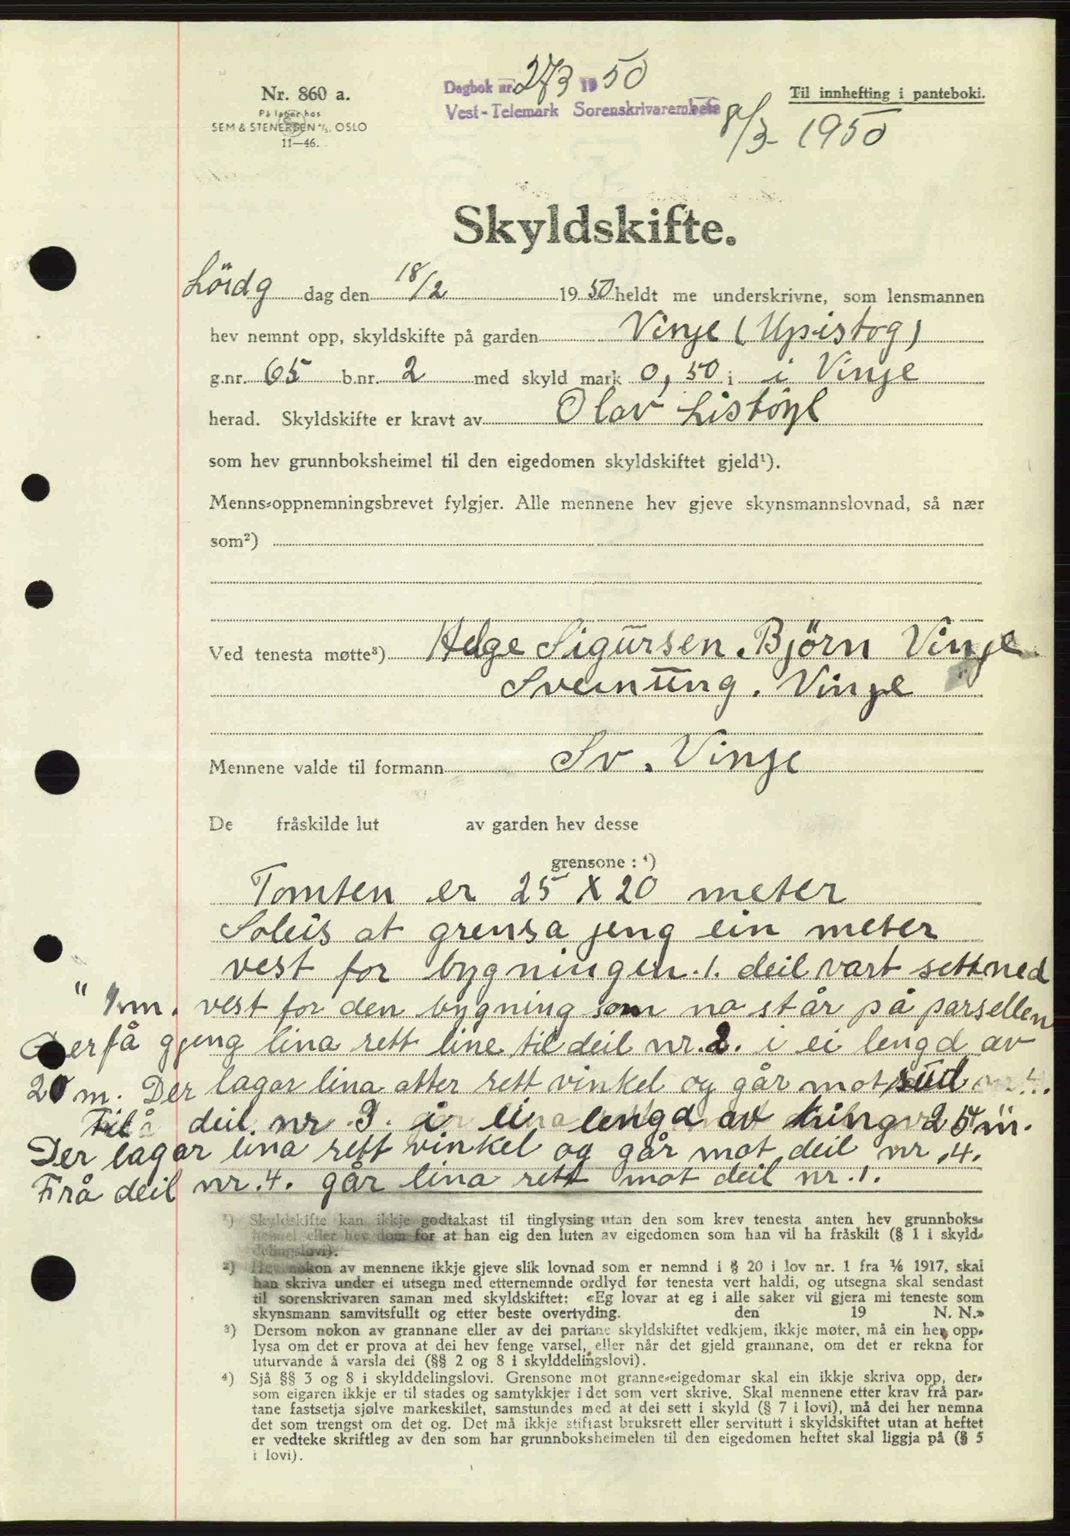 Nr. 860 a.
På lager hos
SEM & STENERSEN A/S, OSLO
11—46.
Dagbok nr. 273 1950
Vest-Telemark Sorenskrivarembete
8/3 - 1950
Til innhefting i panteboki.
Skyldskifte.
Löidg dag den 18/2 1950 heldt me underskrivne, som lensmannen
hev nemnt opp, skyldskifte på garden Vinje (Upistog)
g.nr. 65 b.nr. 2 med skyld mark 0,50 i i Vinje
herad. Skyldskifte er kravt av Olav Listöyl
som hev grunnboksheimel til den eigedomen skyldskiftet gjeld¹).
Menns-oppnemningsbrevet fylgjer. Alle mennene hev gjeve skynsmannslovnad, så nær
som²)
Ved tenesta møtte³) Helge Sigursen. Björn Vinje
Sveinung. Vinje
Mennene valde til formann Sv. Vinje
De fråskilde lut av garden hev desse
grensone : ⁴)
Tomten er 25 X 20 meter
Soleis at grensa jeng ein meter
vest for bygningen. 1. deil vart sett ned
" 1 m. vest for den bygning som no står på parsellen
Derfå gjeng lina rett line til deil nr. 2. i ei lengd av
20 m. Der lagar lina atter rett vinkel og går mot sud
Til deil. nr. 3. i lengd av kring 25 m.
Der lagar lina rett vinkel og går mot deil nr. 4.
Frå deil nr. 4. går lina rett mot deil nr. 1.
¹) Skyldskifte kan ikkje godtakast til tinglysing utan den som krev tenesta anten hev grunnboks-
heimel eller hev dom for at han eig den luten av eigedomen som han vil ha fråskilt (§ 1 i skyld-
delingslovi).
²) Hev nokon av mennene ikkje gjeve slik lovnad som er nemnd i § 20 i lov nr. 1 fra 1/6 1917, skal
han skriva under ei utsegn med etternemnde ordlyd før tenesta vert haldi, og utsegna skal sendast
til sorenskrivaren saman med skyldskiftet: «Eg lovar at eg i alle saker vil gjera mi teneste som
skynsmann samvitsfullt og etter beste overtyding. den 19 N. N.»
³) Dersom nokon av grannane eller av dei partane skyldskiftet vedkjem, ikkje møter, må ein her opp-
lysa om det er prova at dei hev fenge varsel, eller når det gjeld grannane, om det er rekna for
uturvande å varsla dei (§§ 2 og 8 i skylddelingslovi).
⁴) Sjå §§ 3 og 8 i skylddelingslovi. Grensone mot granne-eigedomar skal ein ikkje skriva opp, der-
som eigaren ikkje er til stades og samtykkjer i det som vert skrive. Skal mennene etter krav frå par-
tane fastsetja sjølve markeskilet, samstundes med at dei sett i skyld (§ 7 i lovi), må dei her nemna
det som trengst om det og. Det må ikkje stiftast bruksrett eller servitutt i skyldskiftet utan at heftet
er vedteke skriftleg av den som har grunnboksheimelen til den eigedomen heftet skal liggja på (§ 5
i lovi).